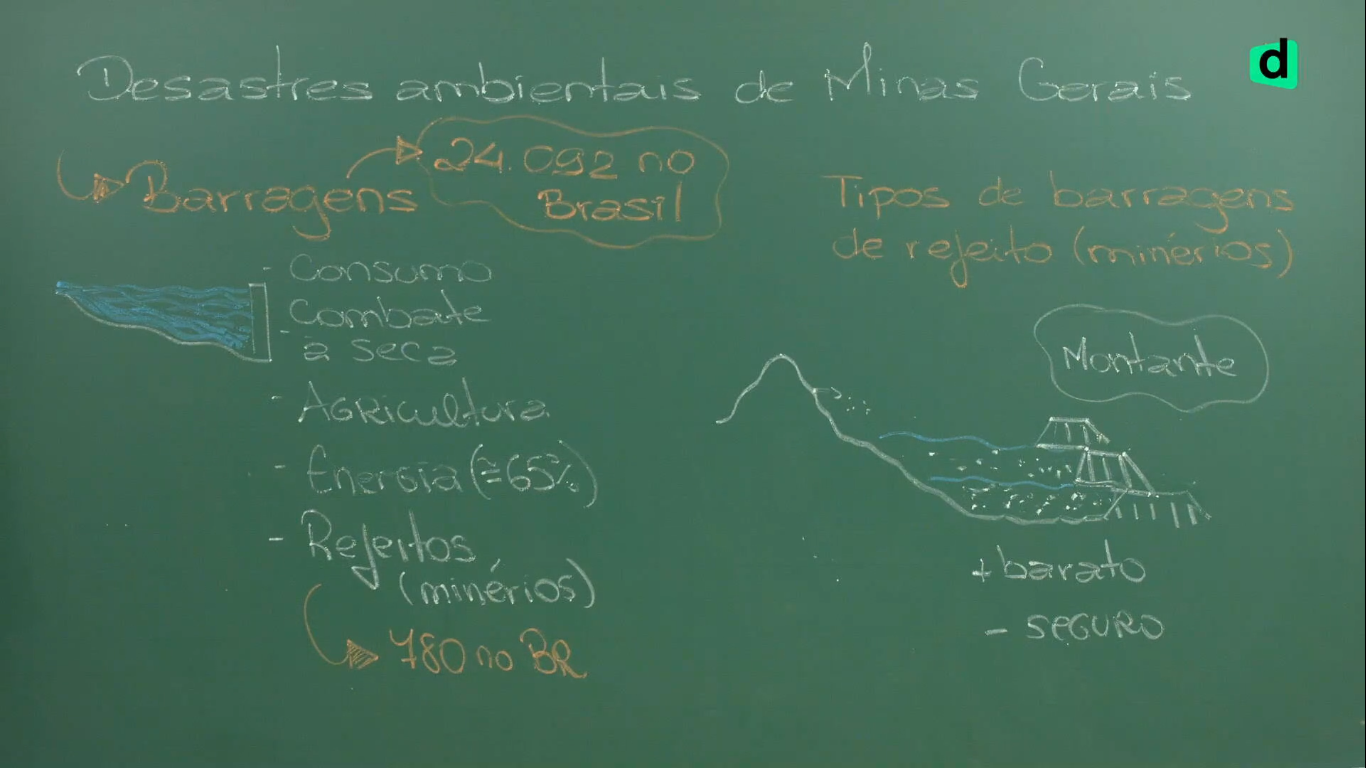 Desastres ambientais de Minas Gerais
d
Barragens
24.092 no
Brasil
- Consumo
- Combate
à seca
- Agricultura
- Energia (≅65%)
- Rejeitos
(minérios)
780 no BR
Tipos de barragens
de rejeito (minérios)
Montante
+ barato
- SEGURO